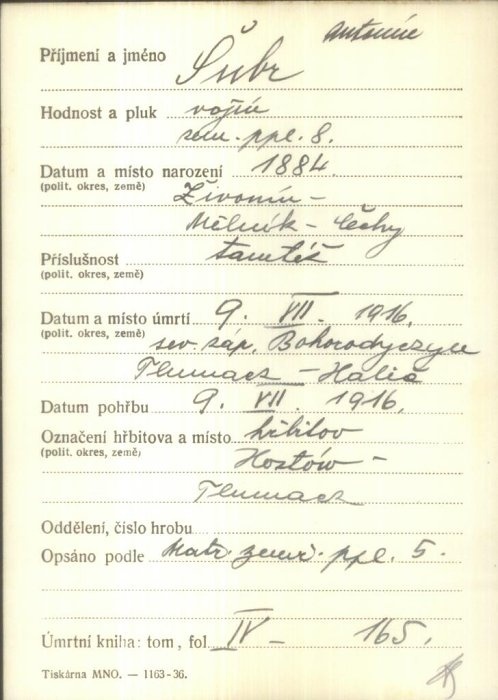 Antonín
Příjmení a jméno Šubr
Hodnost a pluk vojín
zem. ppl. 8.
Datum a místo narození 1884.
(polit. okres, země)
Živonín -
Mělník - Čechy
Příslušnost tamtéž
(polit. okres, země)
Datum a místo úmrtí 9. VII. 1916.
(polit. okres, země)
sev. záp. Bohorodyczyn
Tlumacz - Halič
Datum pohřbu 9. VII. 1916.
Označení hřbitova a místo hřbitov
(polit. okres, země)
Hostów -
Tlumacz
Oddělení, číslo hrobu
Opsáno podle Matr. zeměř. ppl. 5.
Úmrtní kniha: tom, fol IV - 165.
Tiskárna MNO. — 1163-36.